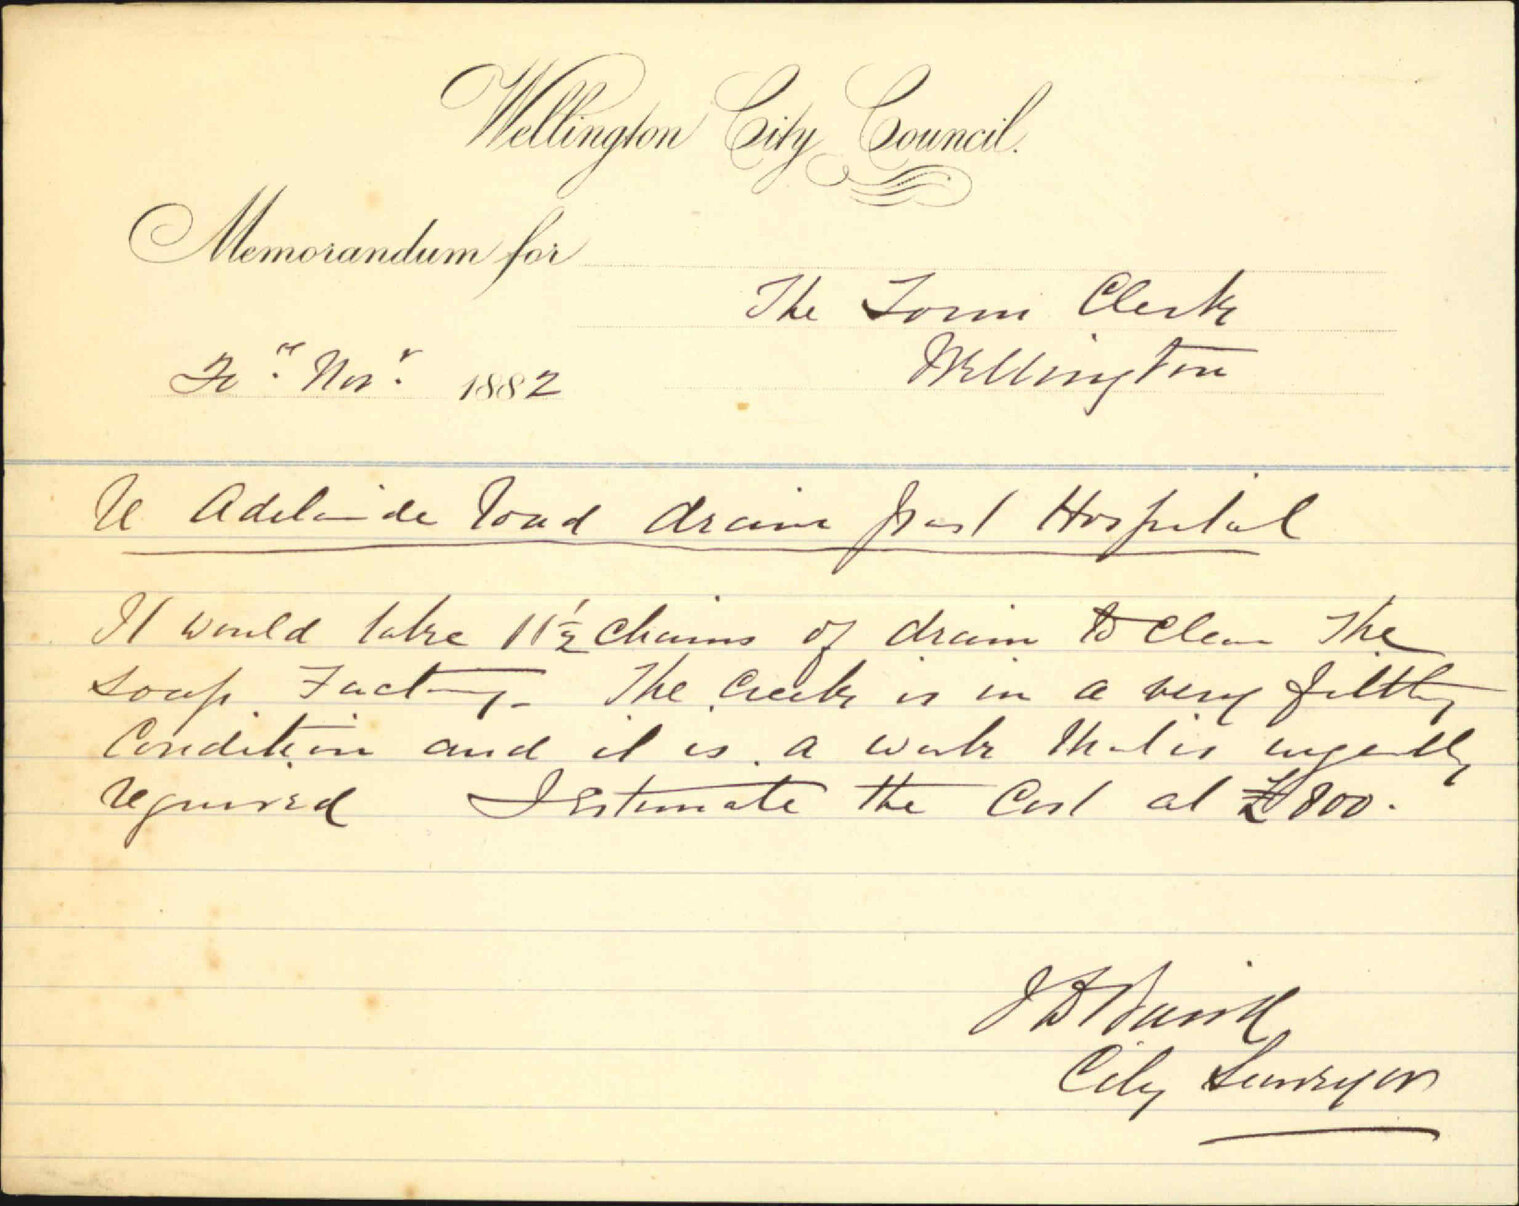 Wellington City Council.
Memorandum for
The Town Clerk
Wellington
Novr. 1882
Re Adelaide Road drain past Hospital
It would take 11½ Chains of drain to clear The
Soap Factory. The Creek is in a very filthy
Condition and it is a work that is urgently
required I Estimate the Cost at £800.
J D Baird
City Surveyor